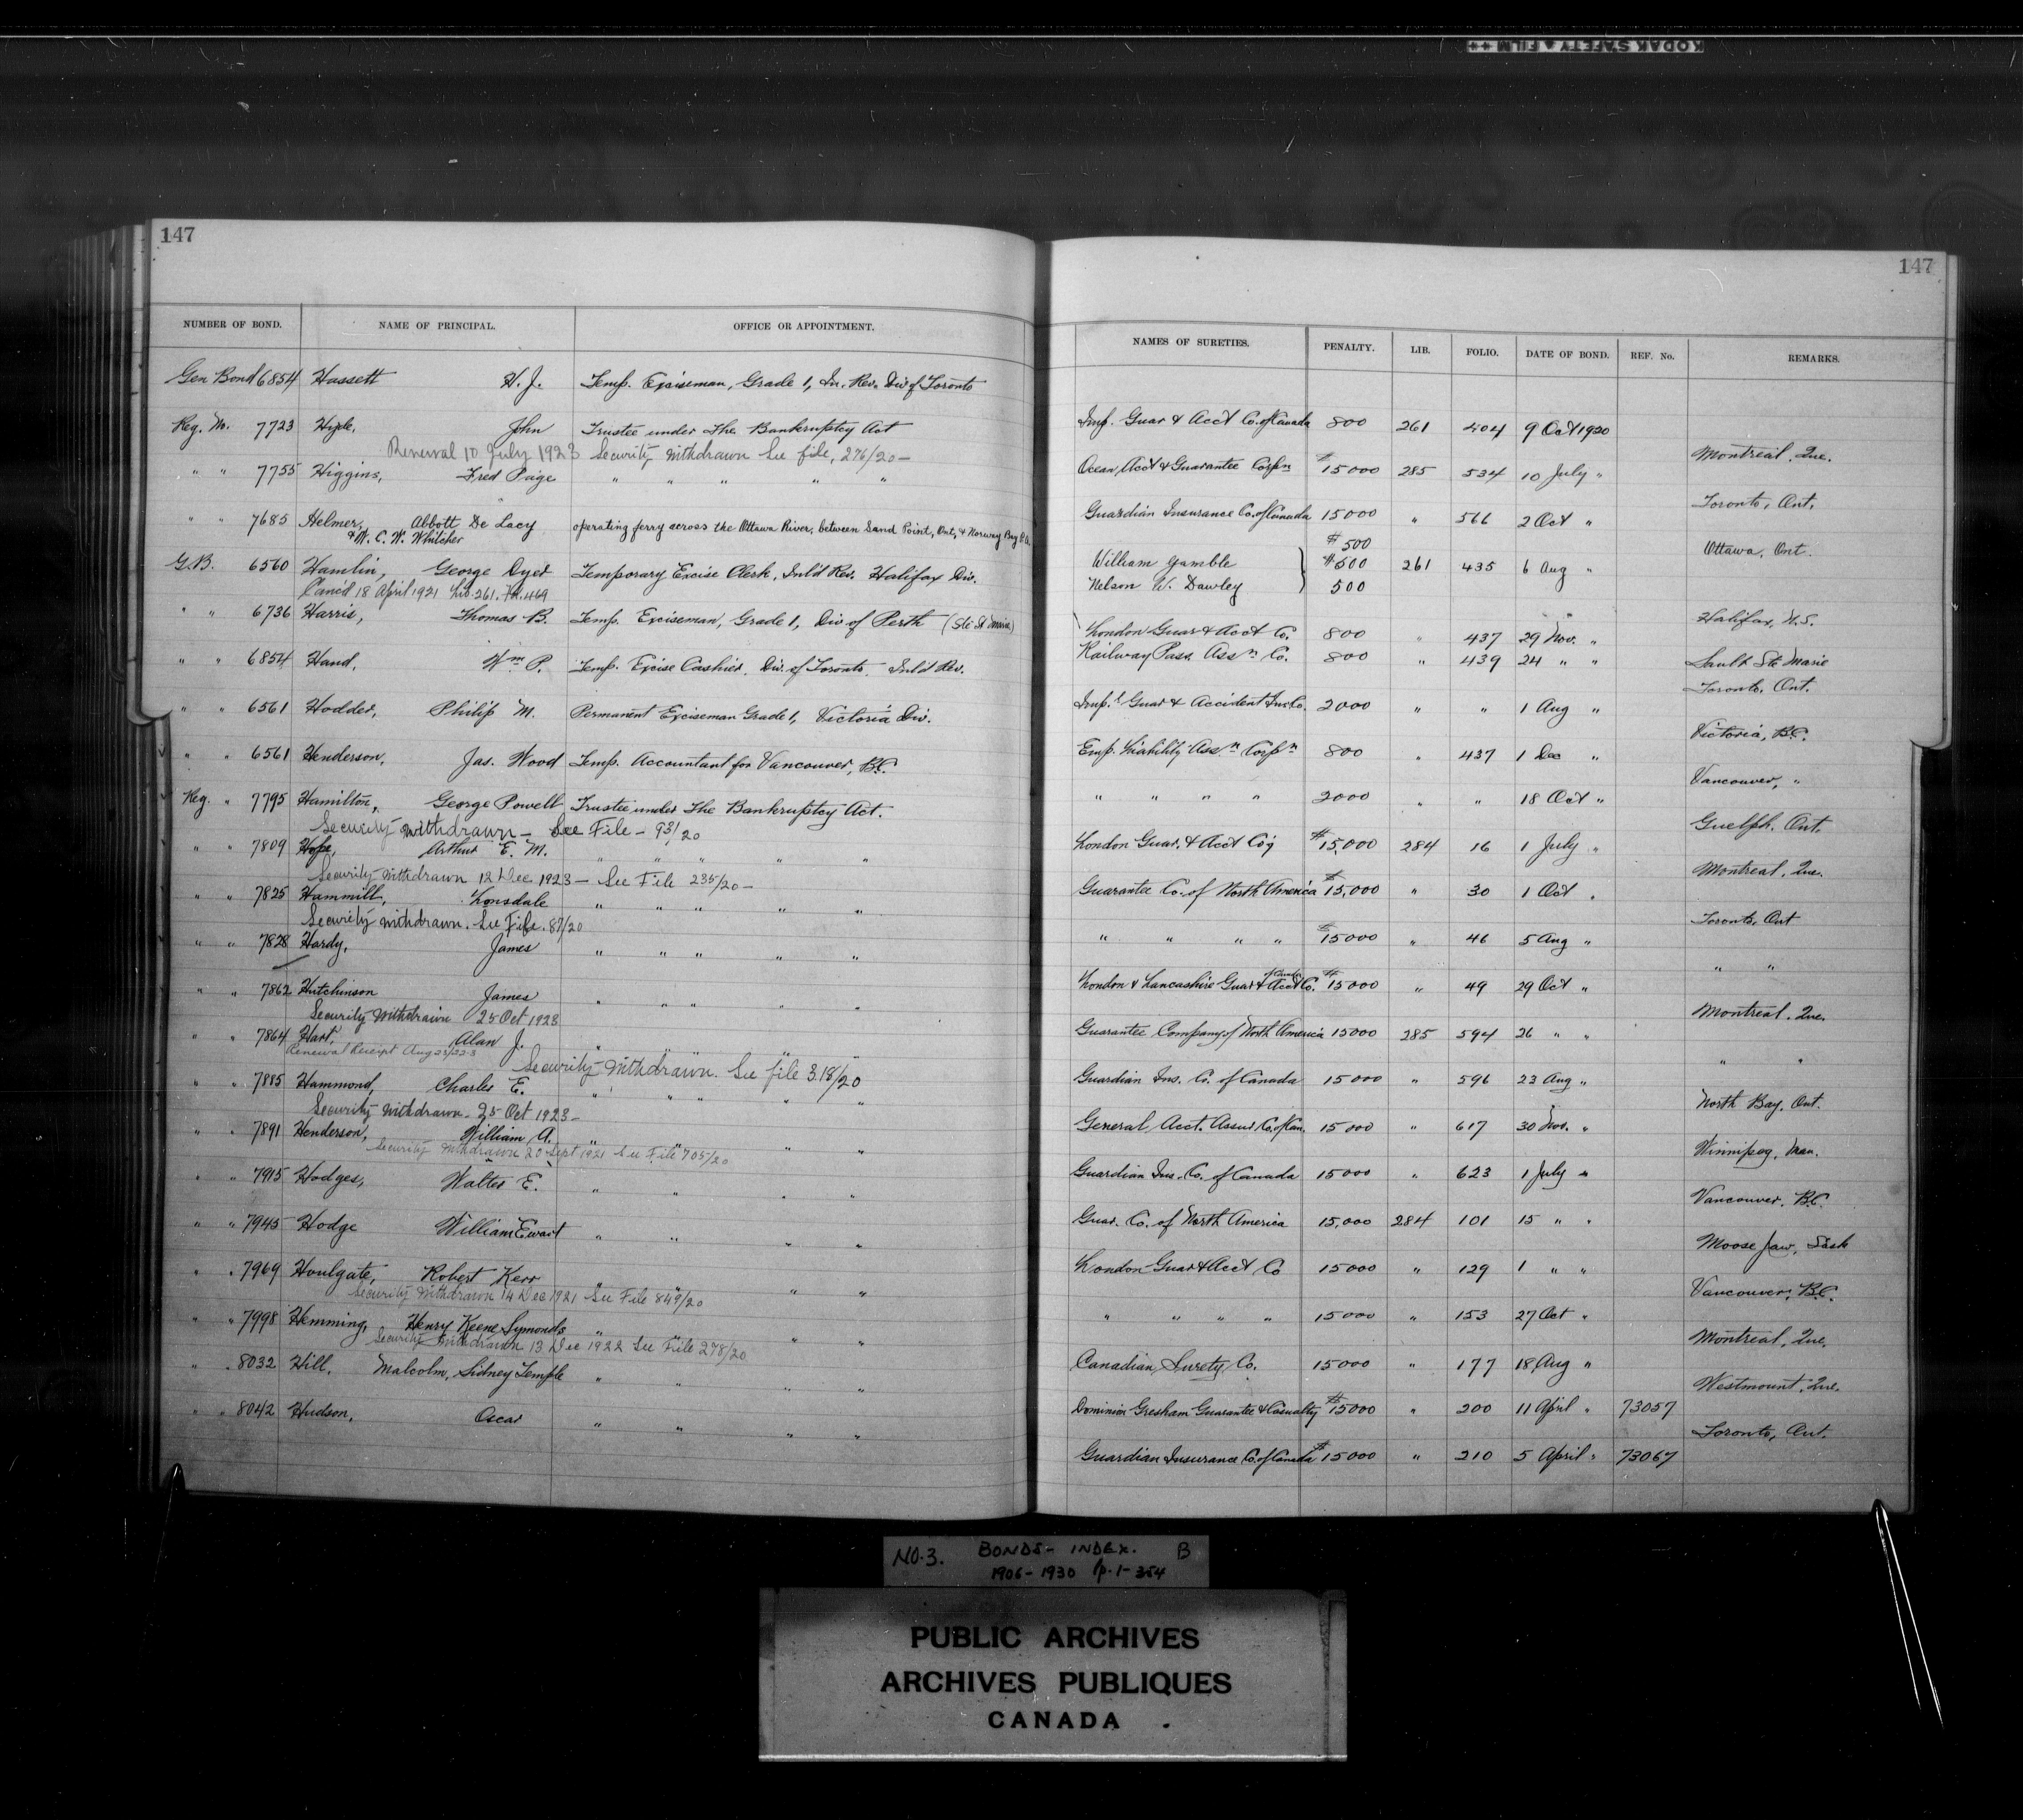 KODAK SAFETY FILM
147
NUMBER OF BOND. NAME OF PRINCIPAL. OFFICE OR APPOINTMENT.
Gen Bond 6854 Hassett H. J. Temp. Exciseman, Grade 1, In. Rev. Div of Toronto
Reg. M. 7723 Hyde, John Trustee under The Bankruptcy Act
Renewal 10 July 1923 Security withdrawn See file, 276/20 —
" " 7755 Higgins, Fred Paige " " " " "
" " 7685 Helmer, Abbott De Lacy operating ferry across the Ottawa River, between Sand Point, Ont, & Norway Bay P.Q.
& W. C. W. Whitcher
G.B. 6560 Hamlin, George Dyer Temporary Excise Clerk, Inl'd Rev. Halifax Div.
Canc'd 18 April 1921 Lib. 261. Fo. 469
" " 6736 Harris, Thomas B. Temp. Exciseman, Grade 1, Div of Perth (Ste St Marie)
" " 6854 Hand, Wm P. Temp. Excise Cashier. Div. of Toronto. Inl'd Rev.
" " 6561 Hodder, Philip M. Permanent Exciseman Grade 1, Victoria Div.
" " 6561 Henderson, Jas. Wood Temp. Accountant for Vancouver, B.C.
Reg. " 7795 Hamilton, George Powell Trustee under The Bankruptcy Act.
Security withdrawn — See File — 93/20
" " 7809 Hope, Arthur E. M. " " " " "
Security withdrawn 12 Dec 1923 — See File 235/20 —
" " 7825 Hammill, Lonsdale " " " " "
Security withdrawn. See File. 87/20
" " 7828 Hardy, James " " " " "
" " 7862 Hutchinson James " " " " "
Security withdrawn 25 Oct 1923
" " 7864 Hart, Alan J. " " " " "
Renewal Receipt Aug 23/22-3
Security withdrawn. See file 318/20
" " 7885 Hammond, Charles E. " " " " "
Security withdrawn. 25 Oct 1923 —
" " 7891 Henderson, William A. " " " "
Security withdrawn 20 Sept 1921 See File 705/20
" " 7915 Hodges, Walter E. " " " "
" " 7945 Hodge William Ewart " " " "
" " 7969 Houlgate, Robert Kerr " " " "
Security withdrawn 14 Dec 1921 See File 849/20
" " 7998 Hemming, Henry Keene Symonds " " " "
Security withdrawn 13 Dec 1922 See File 278/20
" " 8032 Hill, Malcolm, Sidney Temple " " " "
" " 8042 Hudson, Oscar " " " "
147
NAMES OF SURETIES. PENALTY. LIB. FOLIO. DATE OF BOND. REF. No. REMARKS.
Imp. Guar & Acct Co. of Canada 800 261 404 9 Oct 1920
Montreal, Que.
Ocean, Acct & Guarantee Corpn $15000 285 534 10 July "
Toronto, Ont.
Guardian Insurance Co. of Canada 15000 " 566 2 Oct "
$500
Ottawa, Ont.
William Gamble $500 261 435 6 Aug "
Nelson W. Dawley 500
Halifax, N.S.
London Guar & Acct Co. 800 " 437 29 Nov. "
Railway Pass. Assn Co. 800 " 439 24 " " Sault Ste Marie
Toronto, Ont.
Imp'l Guar & Accident Ins Co. 2000 " " 1 Aug "
Victoria, B.C.
Emp. Liability Assn Corpn 800 " 437 1 Dec "
Vancouver, "
" " " " 2000 " " 18 Oct "
Guelph, Ont.
London Guar. & Acct Coy $15,000 284 16 1 July "
Montreal, Que.
Guarantee Co. of North America $15,000 " 30 1 Oct "
Toronto, Ont
" " " " $15000 " 46 5 Aug "
" "
London & Lancashire Guar & Acct Co. of Canada $15000 " 49 29 Oct "
Montreal, Que.
Guarantee Company of North America 15000 285 594 26 " "
" "
Guardian Ins. Co. of Canada 15000 " 596 23 Aug "
North Bay, Ont.
General Acct. Assur Co. of Can. 15000 " 617 30 Nov. "
Winnipeg, Man.
Guardian Ins. Co. of Canada 15000 " 623 1 July "
Vancouver, B.C.
Guar. Co. of North America 15,000 284 101 15 " "
Moose Jaw, Sask
London Guar & Acct Co 15000 " 129 1 " "
Vancouver, B.C.
" " " " 15000 " 153 27 Oct "
Montreal, Que.
Canadian Surety Co. 15000 " 177 18 Aug "
Westmount, Que.
Dominion Gresham Guarantee & Casualty $15000 " 200 11 April " 73057
Toronto, Ont.
Guardian Insurance Co. of Canada $15000 " 210 5 April " 73067
NO. 3. BONDS - INDEX. B
1906 - 1930 p. 1 - 354
PUBLIC ARCHIVES
ARCHIVES PUBLIQUES
CANADA